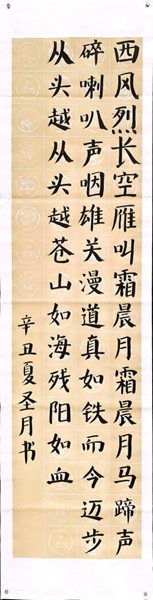 西风烈长空雁叫霜晨月霜晨月马蹄声
碎喇叭声咽雄关漫道真如铁而今迈步
从头越从头越苍山如海残阳如血
辛丑夏圣月书